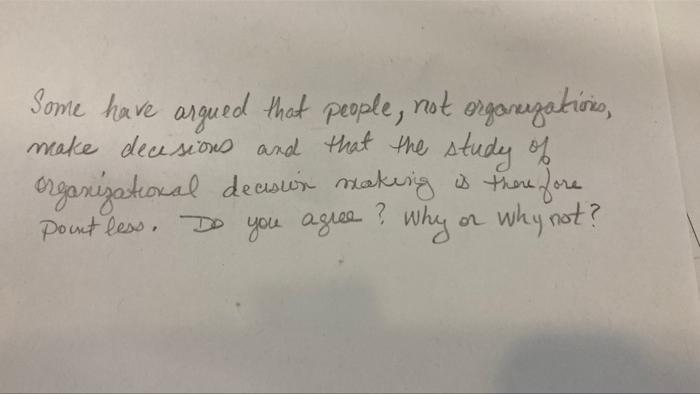 Some have argued that people, not organizations,
make decisions and that the study of
organizational decision making is therefore
pointless. Do you agree? Why or why not?